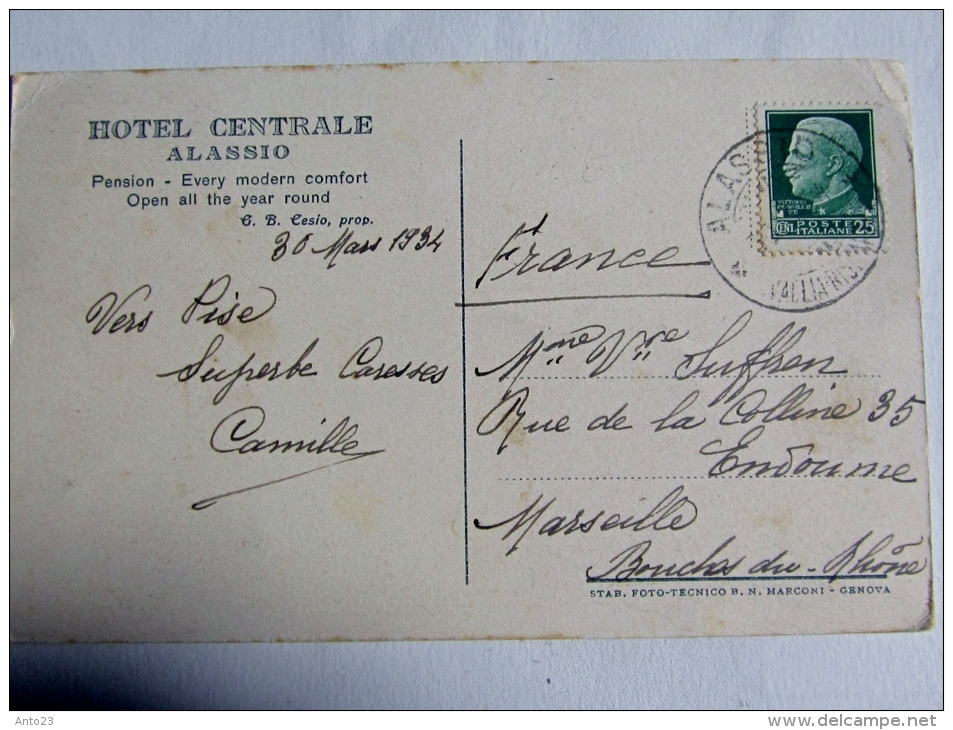 HOTEL CENTRALE
ALASSIO
Pension - Every modern comfort
Open all the year round
G. B. Cesio, prop.
30 Mars 1934
Vers Pise
Superbe Caresses
Camille
France
Mme Vve Suffren
Rue de la Colline 35
Endoume
Marseille
Bouches du-Rhône
STAB. FOTO-TECNICO B. N. MARCONI - GENOVA
ALAS
VITTORIO
CENT. POSTE 25
ITALIANE
Anto23
delcampe.net